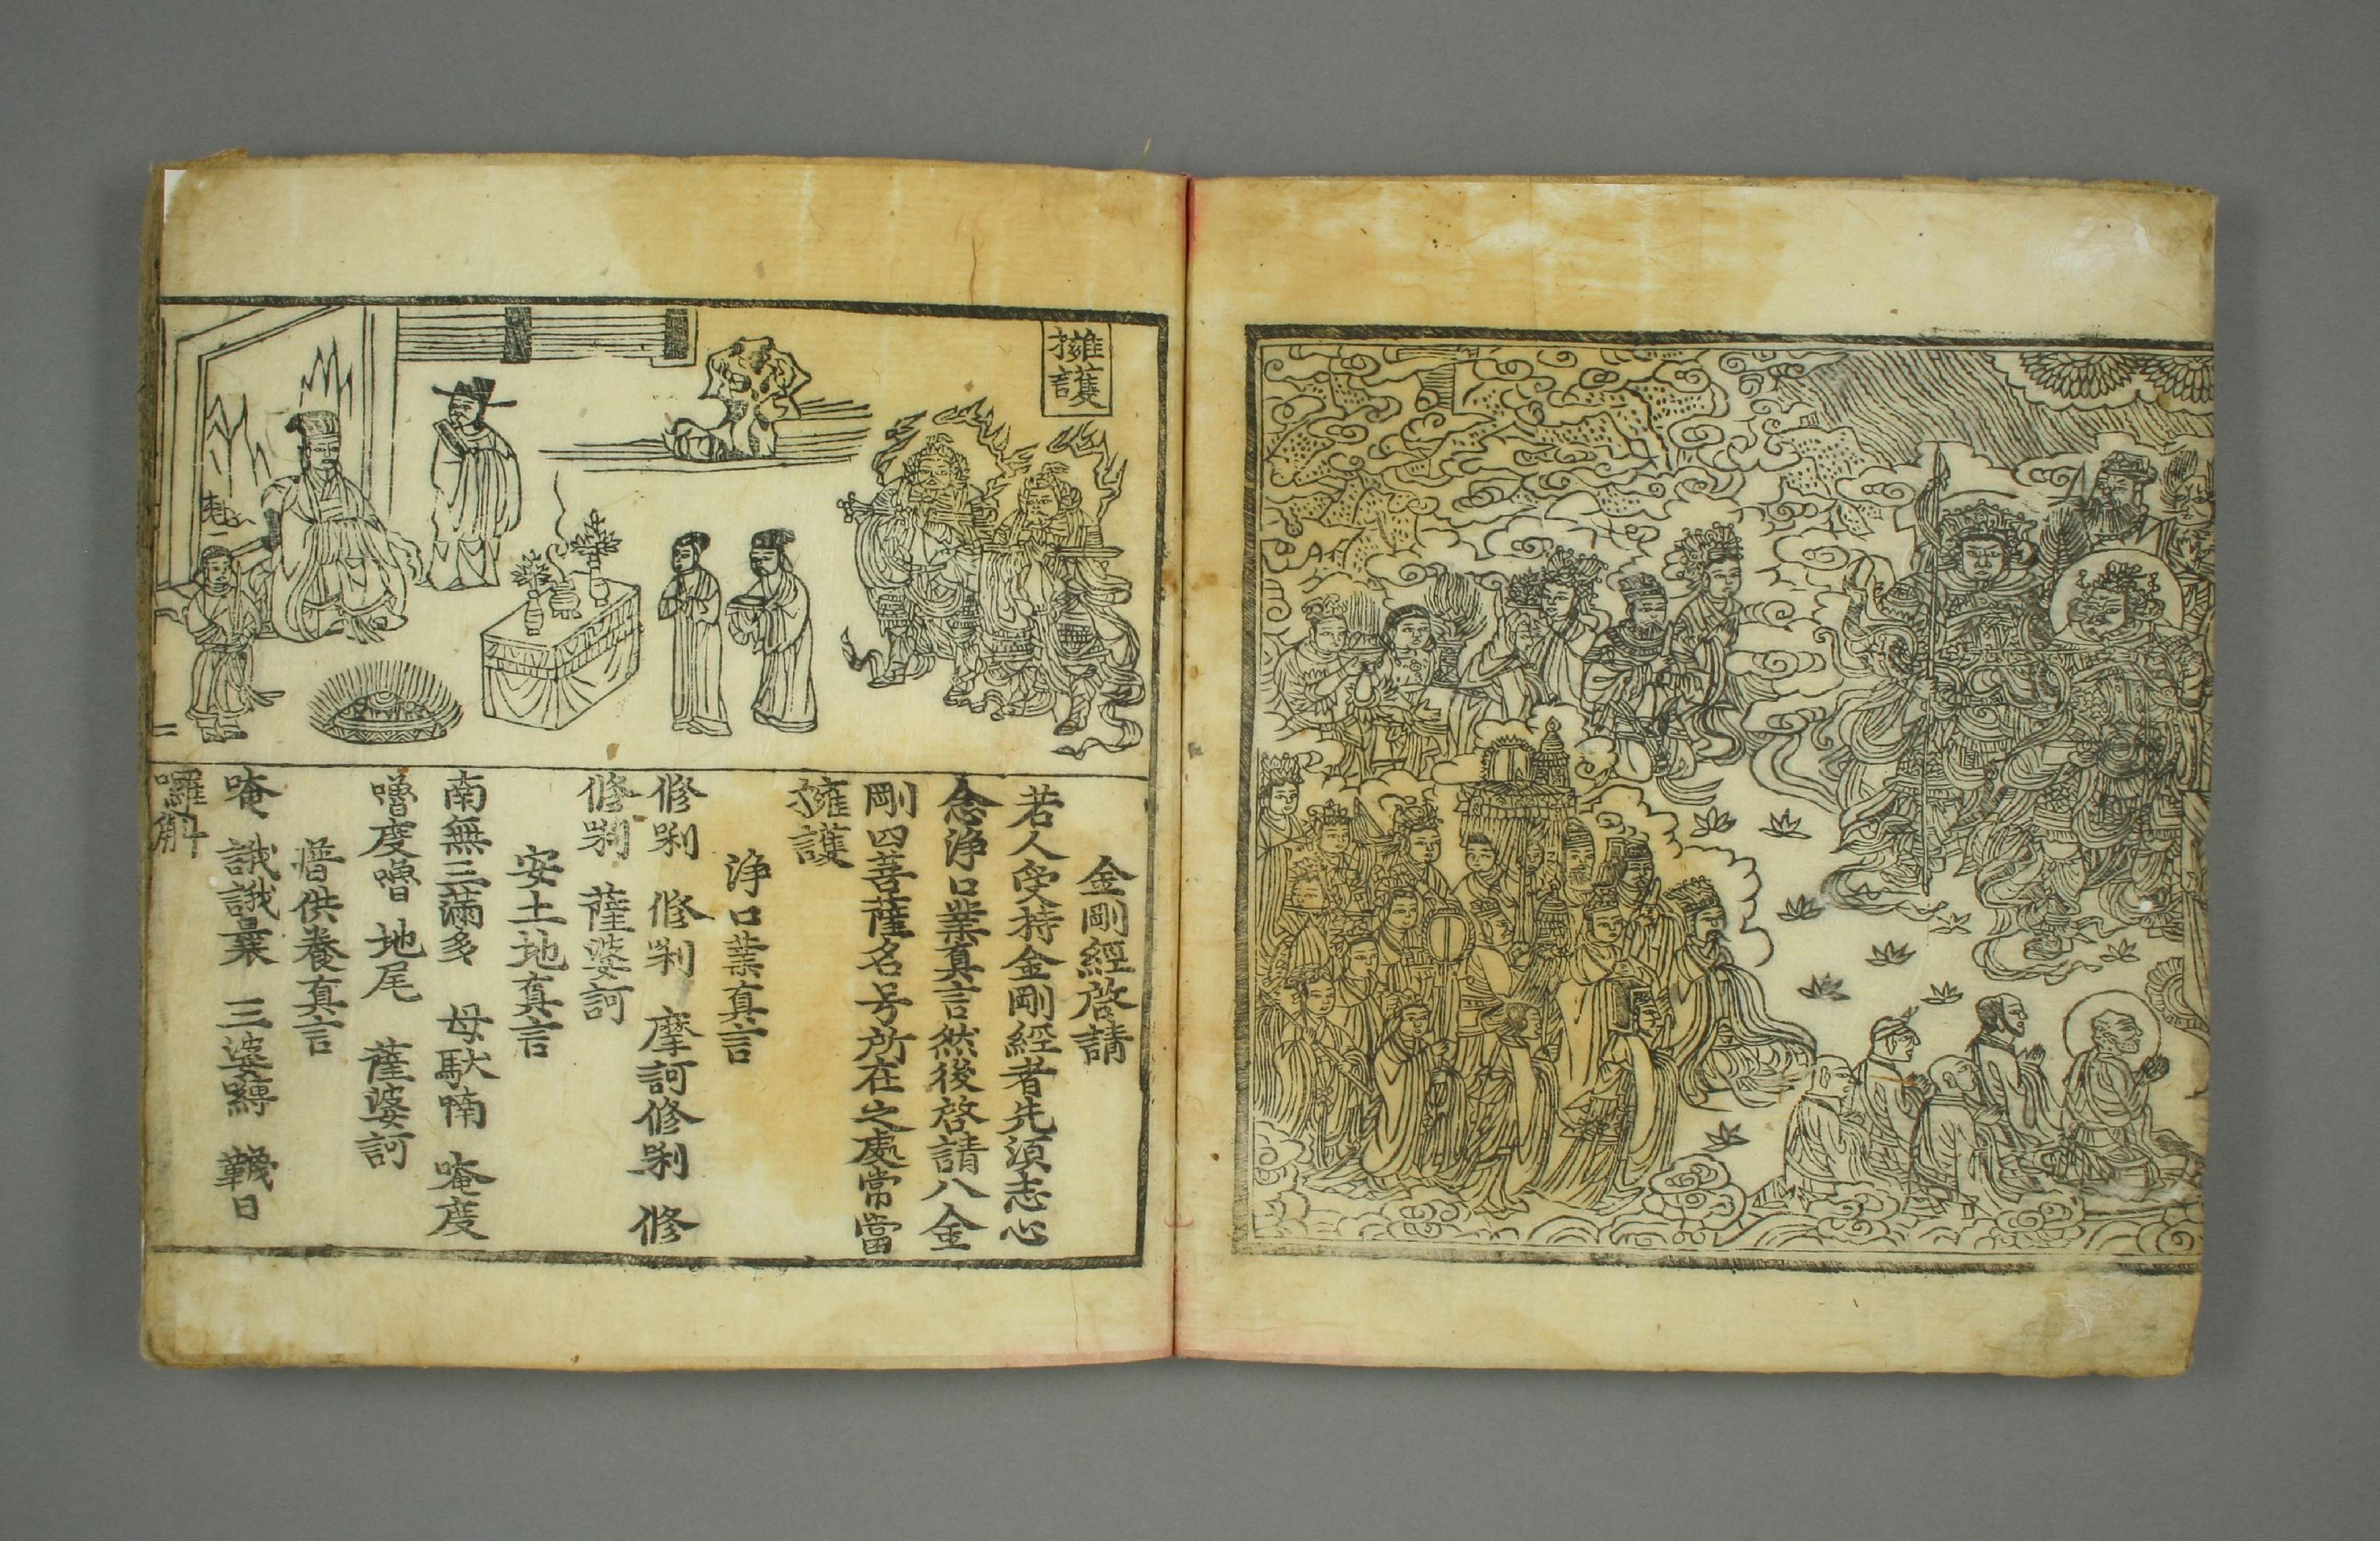 擁護
金剛經啓請
若人受持金剛經者先須志心
念淨口業真言然後啓請八金
剛四菩薩名号所在之處常當
擁護
淨口業真言
修唎 修唎 摩訶修唎 修
修唎 薩婆訶
安土地真言
南無三滿多 母馱喃 唵度
嚕度嚕 地尾 薩婆訶
普供養真言
唵 誐誐曩 三婆嚩 韈日
囉斛